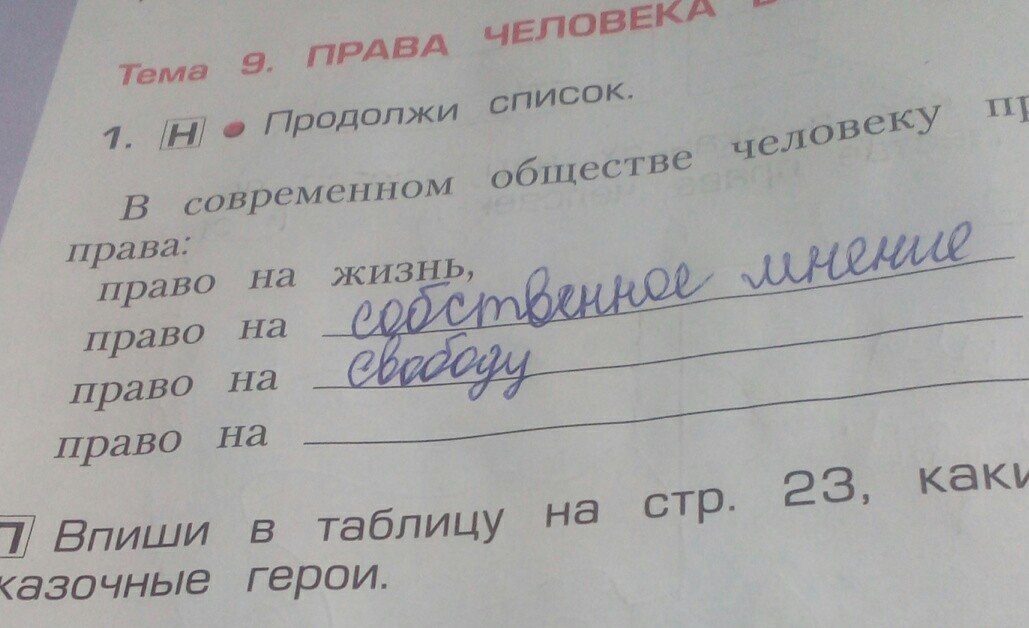 Тема 9. ПРАВА ЧЕЛОВЕКА
1. Н • Продолжи список.
В современном обществе человеку
права:
право на жизнь,
право на собственное мнение
право на свободу
право на
П Впиши в таблицу на стр. 23,
герои.